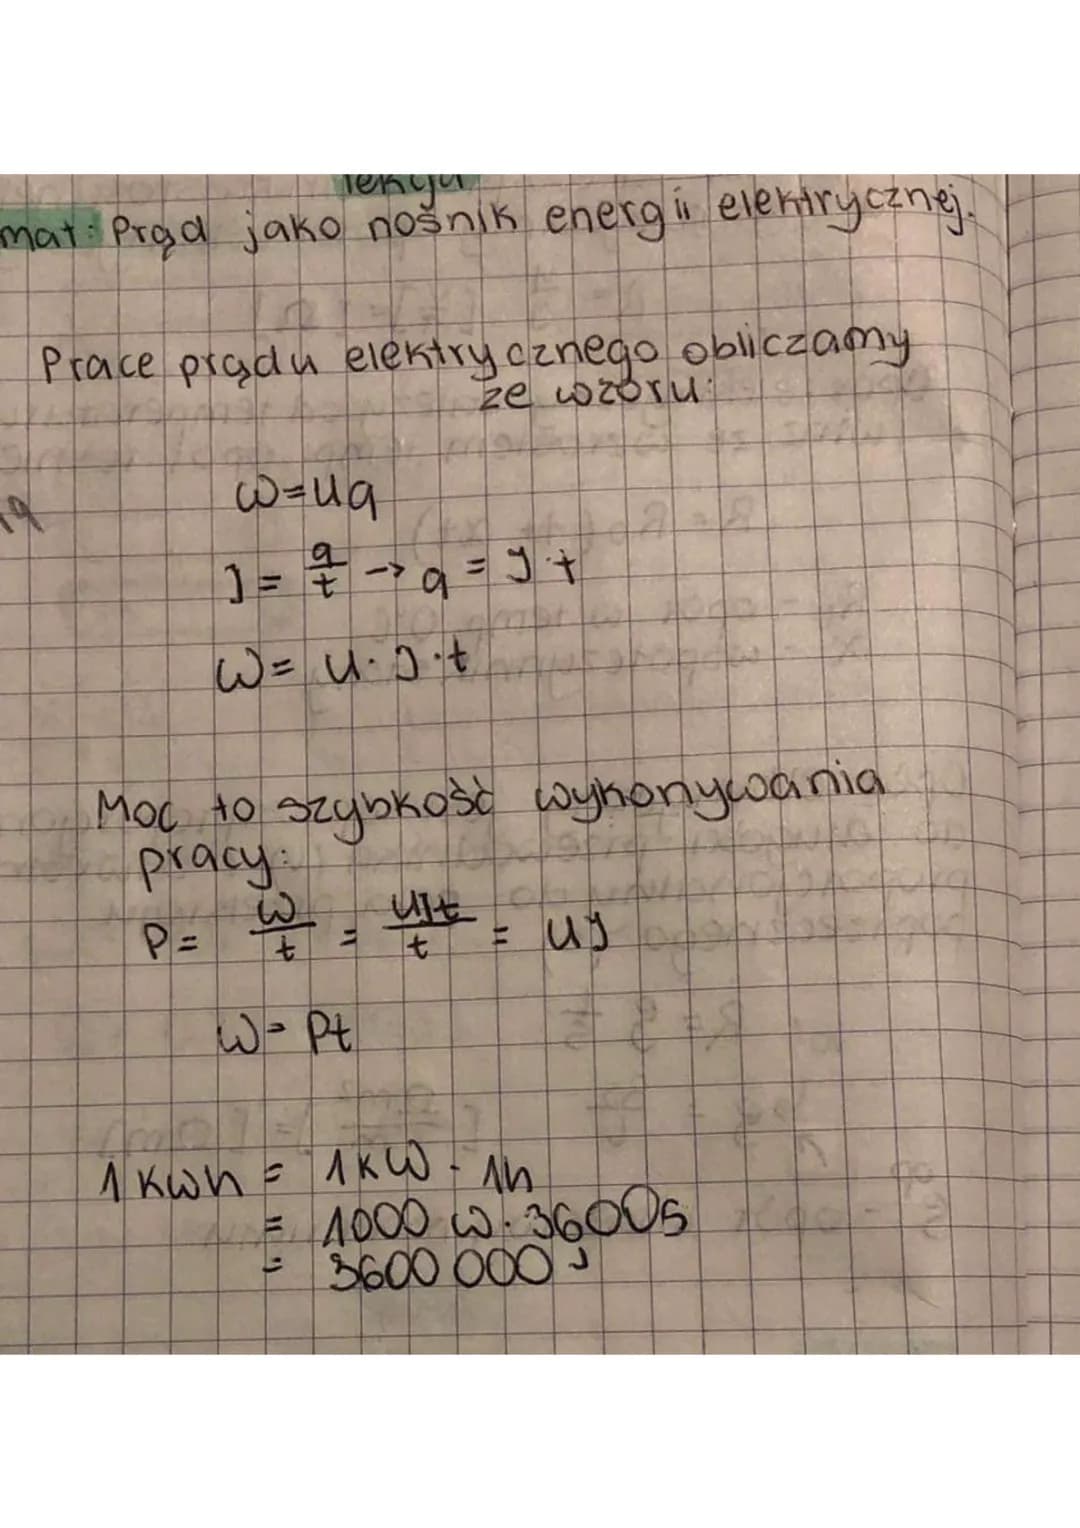 lekcja
mat: Prąd jako nośnik energii elektrycznej.
Prace prądu elektrycznego obliczamy
ze wzoru:
W=Uq
I = q/t → q = I·t
W = U·I·t
Moc to szybkość wykonywania
pracy:
P = W/t = UIt/t = UI
W = Pt
1 kWh = 1kW · 1h
= 1000 W · 3600s
= 3600 000 J